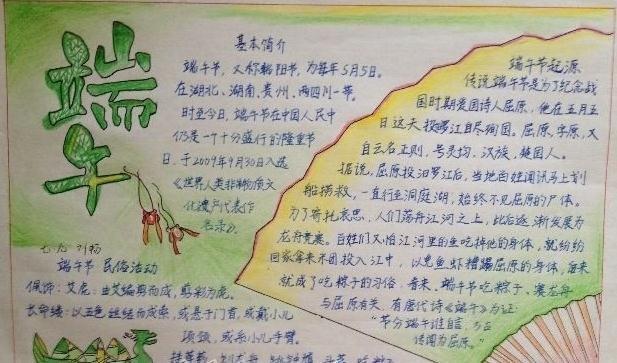 端午
基本简介
端午节，又称端阳节，为每年5月5日。
在湖北、湖南、贵州、四川一带。
时至今日，端午节在中国人民中
仍是一个十分盛行的隆重节
日，于2009年9月30日入选
《世界人类非物质文
化遗产代表作
名录》。
七.九 刘杨
端午节 民俗活动
佩饰：艾虎：由艾编剪而成，剪彩为虎。
长命缕：以五色丝结而成索，或悬于门首，或戴小儿
项颈，或系小儿手臂。
端午节起源
传说端午节是为了纪念战
国时期爱国诗人屈原，他在五月五
日这天投汨罗江自尽殉国。屈原，字原，又
自云名正则，号灵均，汉族，楚国人。
据说，屈原投汨罗江后，当地百姓闻讯马上划
船捞救，一直行至洞庭湖，始终不见屈原的尸体。
为了寄托哀思，人们荡舟江河之上，此后逐渐发展为
龙舟竞赛。百姓们又怕江河里的鱼吃掉他的身体，就纷纷
回家拿来米团投入江中，以免鱼虾糟蹋屈原的身体，后来
就成了吃粽子的习俗。看来，端午节吃粽子、赛龙舟
与屈原有关，有唐代诗《端午》为证：
“节分端午谁自言，万古
传闻为屈原。”